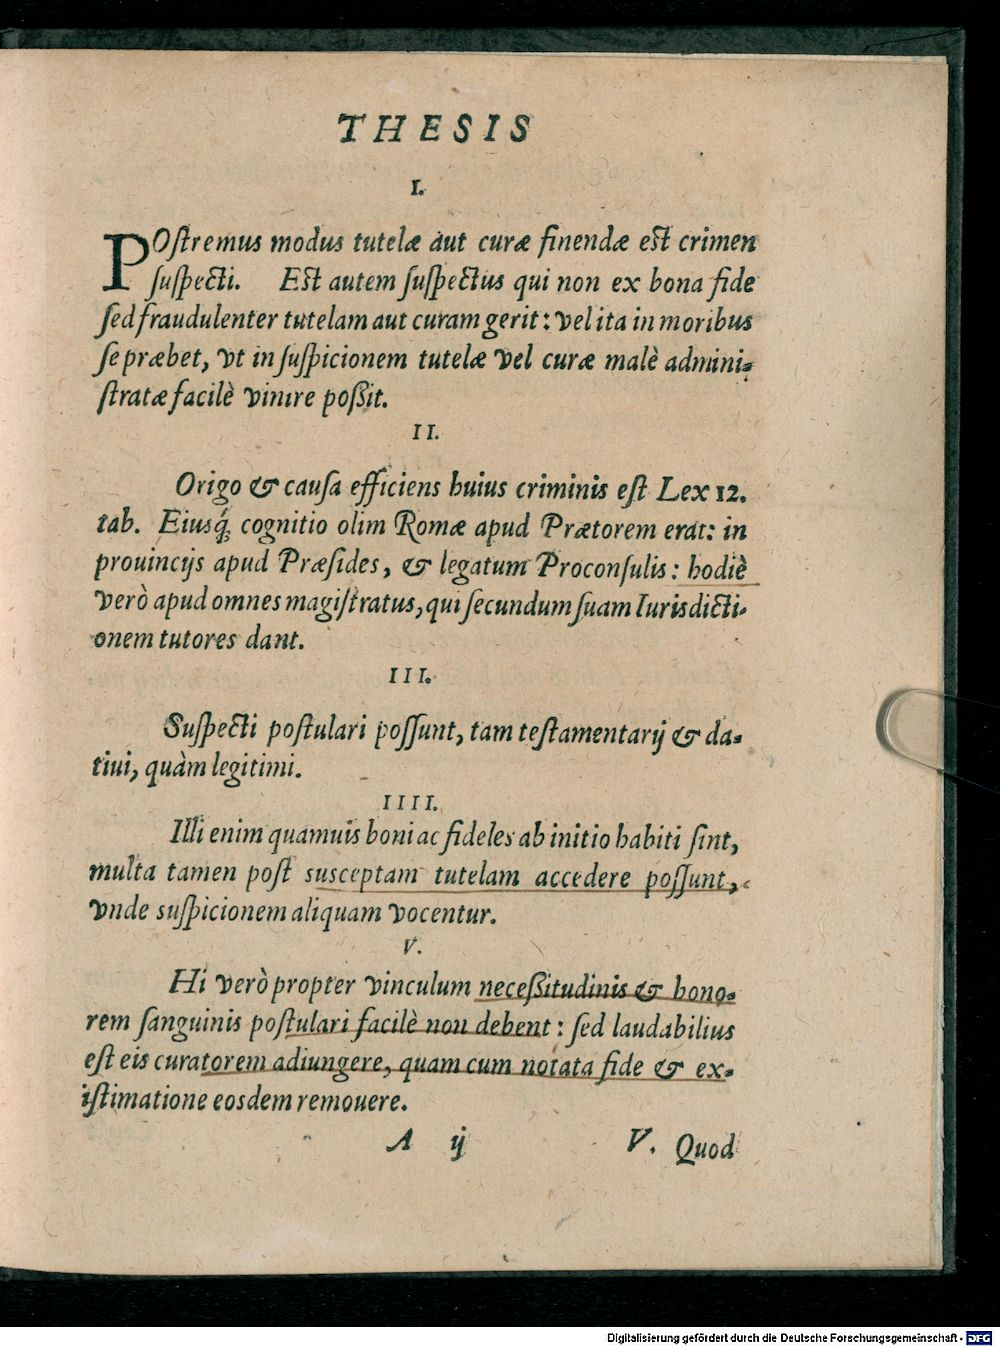 THESIS
I.
POſtremus modus tutelæ aut curæ finendæ est crimen
ſuſpecti. Est autem ſuſpectus qui non ex bona fide
ſed fraudulenter tutelam aut curam gerit: vel ita in moribus
ſe præbet, vt in ſuſpicionem tutelæ vel curæ malè admini-
ſtratæ facilè vinire poßit.
II.
Origo & cauſa efficiens huius criminis eſt Lex 12.
tab. Eiusq́; cognitio olim Romæ apud Prætorem erat: in
prouincijs apud Præſides, & legatum Proconſulis: hodiè
verò apud omnes magiſtratus, qui ſecundum ſuam Iurisdicti-
onem tutores dant.
III.
Suſpecti poſtulari poſſunt, tam teſtamentarij & da-
tiui, quàm legitimi.
IIII.
Illi enim quamuis boni ac fideles ab initio habiti ſint,
multa tamen poſt susceptam tutelam accedere poſſunt,
vnde suſpicionem aliquam vocentur.
V.
Hi verò propter vinculum neceßitudinis & hono-
rem ſanguinis poſtulari facilè non debent: ſed laudabilius
eſt eis curatorem adiungere, quam cum notata fide & ex-
iſtimatione eosdem remouere.
A ij V. Quod
Digitalisierung gefördert durch die Deutsche Forschungsgemeinschaft - DFG